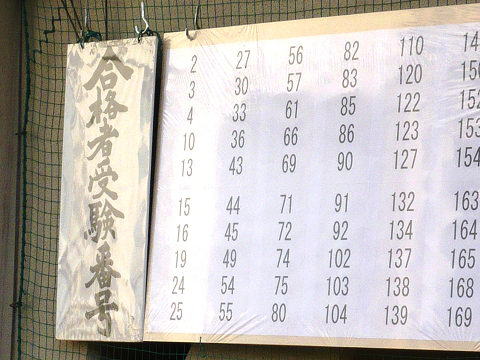 合格者受験番号
2 27 56 82 110
3 30 57 83 120
4 33 61 85 122 152
10 36 66 86 123 153
13 43 69 90 127 154
15 44 71 91 132 163
16 45 72 92 134 164
19 49 74 102 137 165
24 54 75 103 138 168
25 55 80 104 139 169